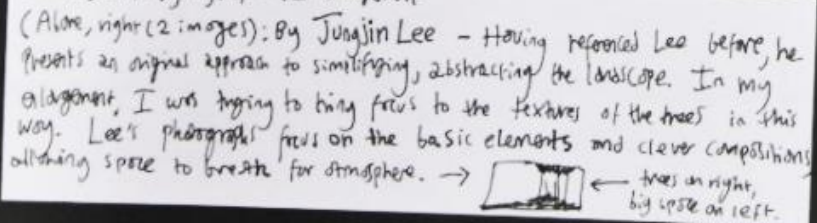 (Above, right (2 images): By Jungjin Lee - Having referenced Lee before, he
presents an original approach to simplifying, abstracting the landscape. In my
enlargement, I was trying to bring focus to the textures of the trees in this
way. Lee's photographs focus on the basic elements and clever compositions
allowing space to breath for atmosphere. →
← trees on right,
big space on left.